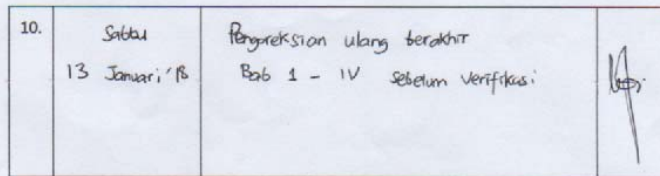 10.
Sabtu
13 Januari '18
Pengoreksian ulang terakhir
Bab 1 - IV sebelum verifikasi